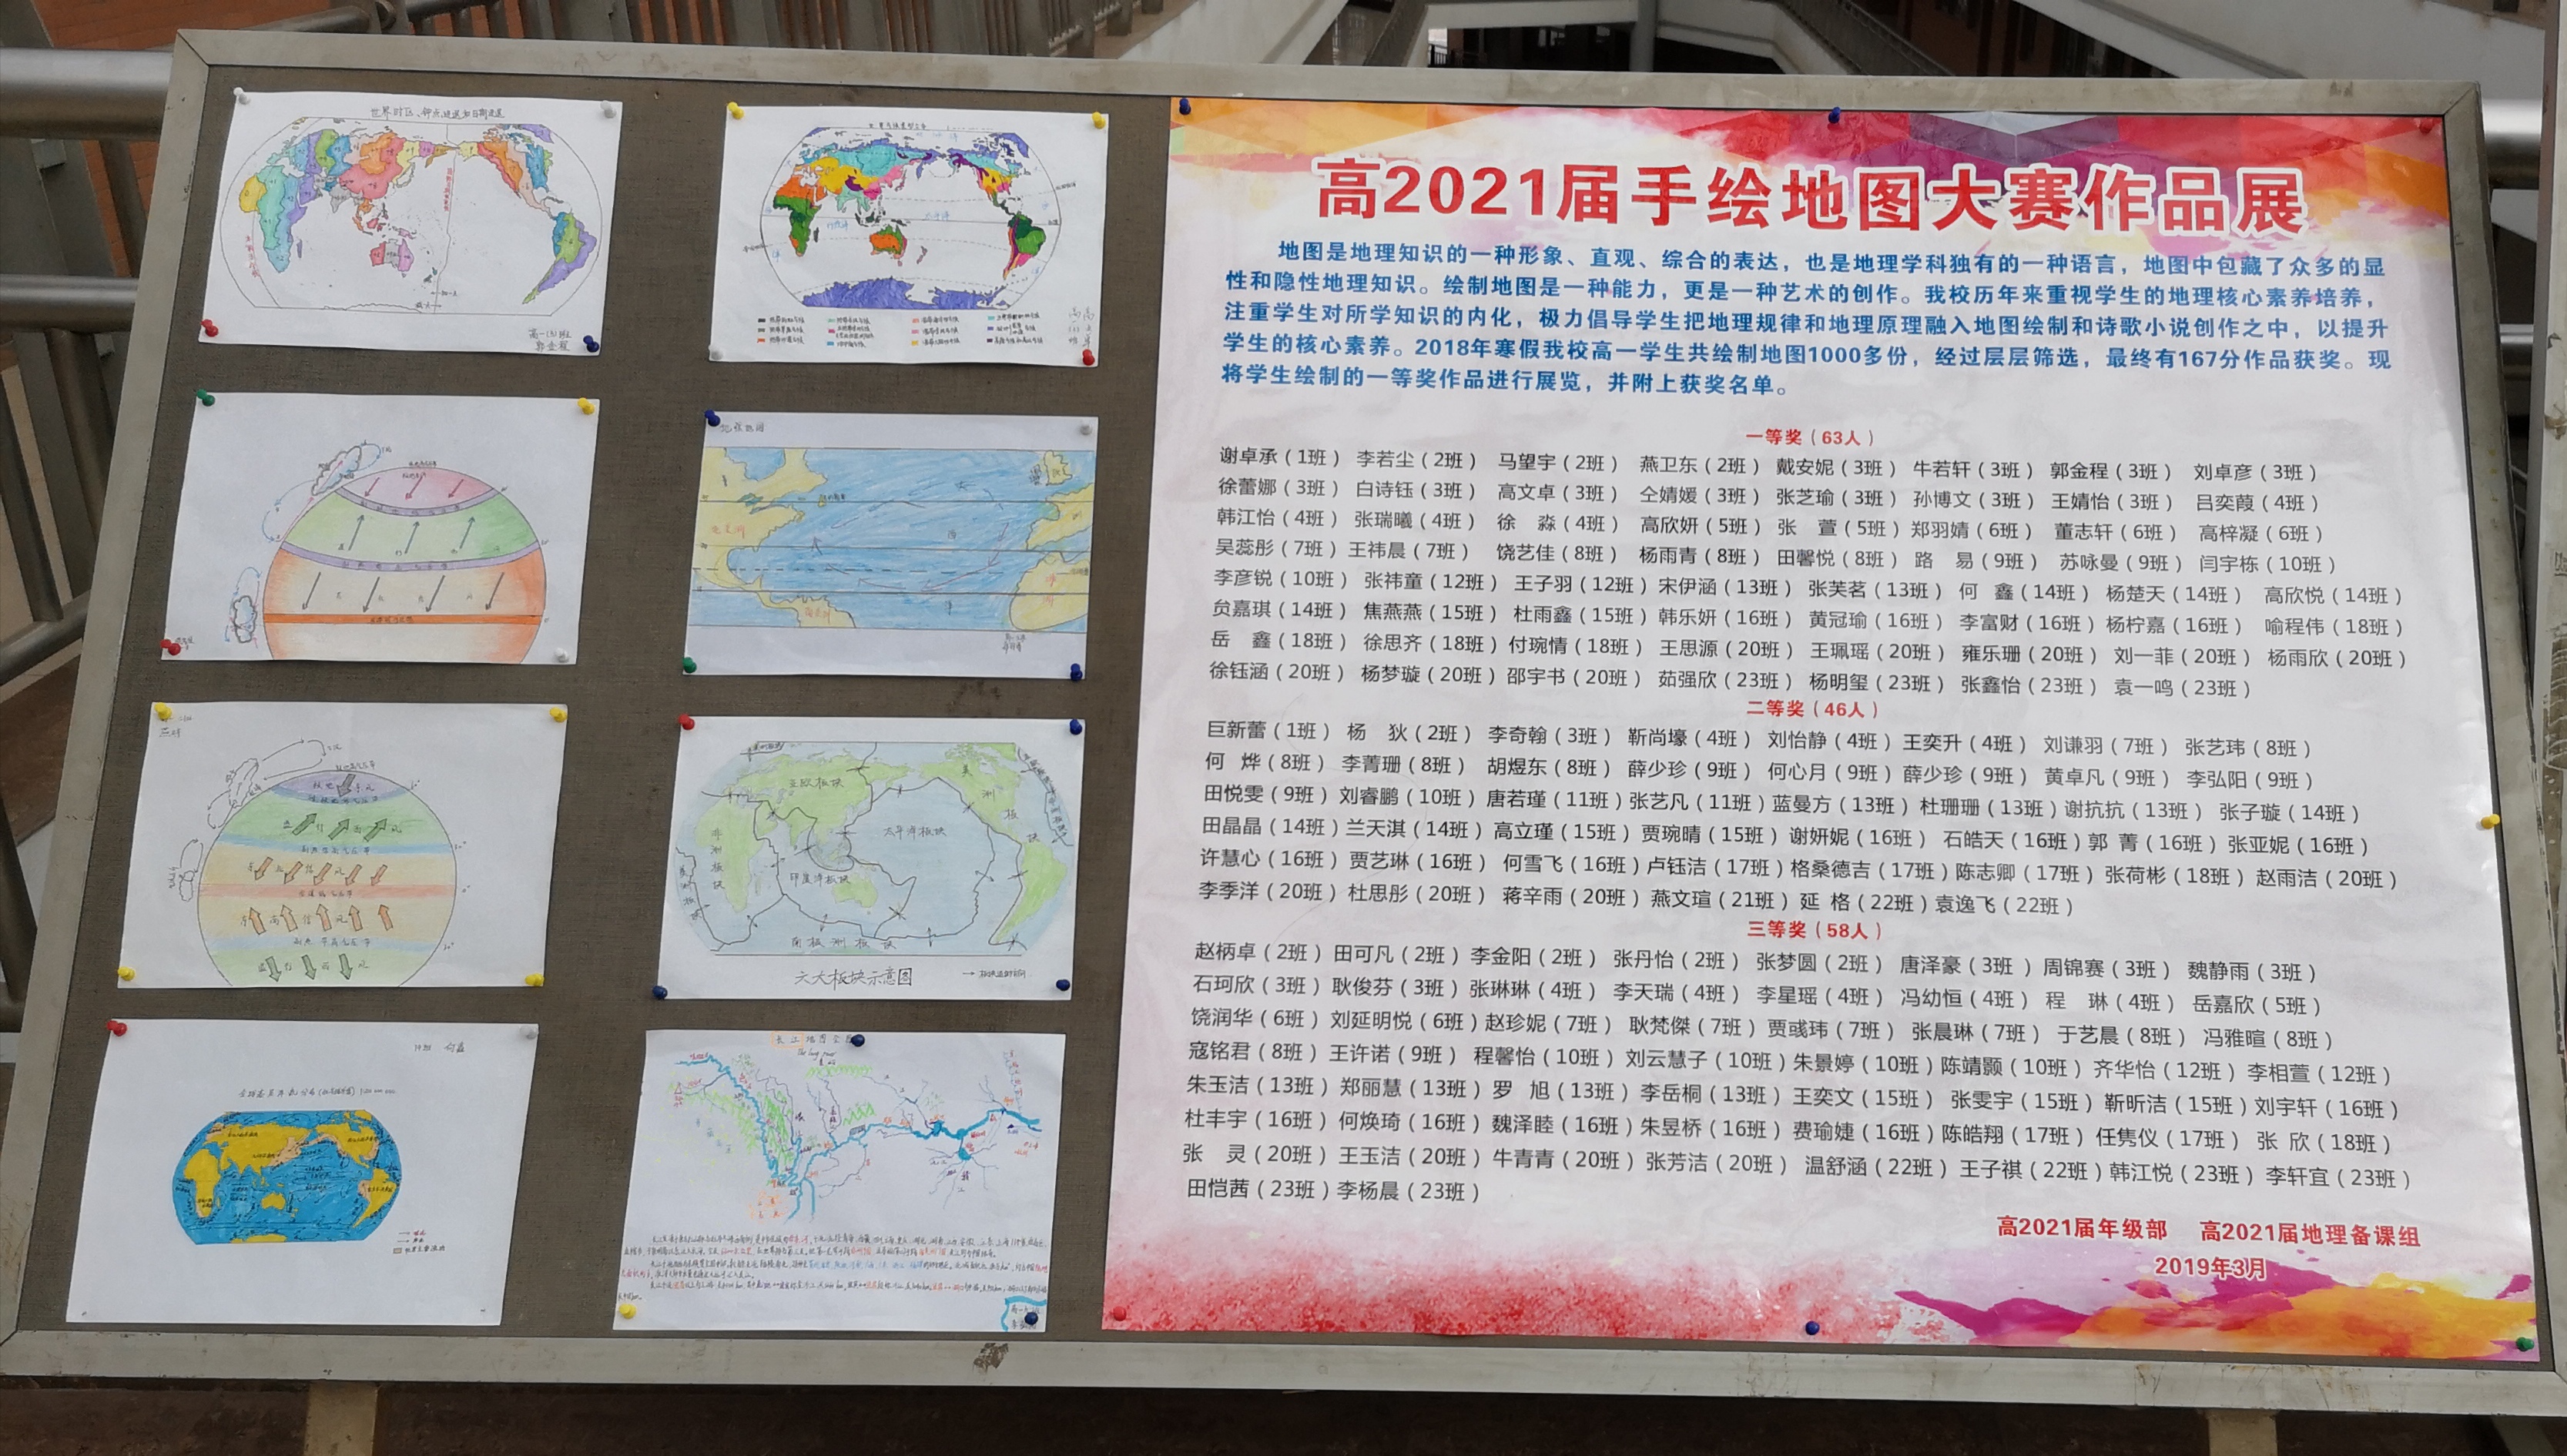 世界时区、钟点进退和日期进退
高一(3)班
郭金程
亚欧板块
太平洋板块
美洲板块
非洲板块
印度洋板块
南极洲板块
六大板块示意图
长江地图全
高2021届手绘地图大赛作品展
地图是地理知识的一种形象、直观、综合的表达，也是地理学科独有的一种语言，地图中包藏了众多的显
性和隐性地理知识。绘制地图是一种能力，更是一种艺术的创作。我校历年来重视学生的地理核心素养培养，
注重学生对所学知识的内化，极力倡导学生把地理规律和地理原理融入地图绘制和诗歌小说创作之中，以提升
学生的核心素养。2018年寒假我校高一学生共绘制地图1000多份，经过层层筛选，最终有167分作品获奖。现
将学生绘制的一等奖作品进行展览，并附上获奖名单。
一等奖（63人）
谢卓承（1班） 李若尘（2班） 马望宇（2班） 燕卫东（2班） 戴安妮（3班） 牛若轩（3班） 郭金程（3班） 刘卓彦（3班）
徐蕾娜（3班） 白诗钰（3班） 高文卓（3班） 仝婧媛（3班） 张芝瑜（3班） 孙博文（3班） 王婧怡（3班） 吕奕葭（4班）
韩江怡（4班） 张瑞曦（4班） 徐 淼（4班） 高欣妍（5班） 张 萱（5班） 郑羽婧（6班） 董志轩（6班） 高梓凝（6班）
吴蕊彤（7班） 王祎晨（7班） 饶艺佳（8班） 杨雨青（8班） 田馨悦（8班） 路 易（9班） 苏咏曼（9班） 闫宇栋（10班）
李彦锐（10班） 张祎童（12班） 王子羽（12班） 宋伊涵（13班） 张芙茗（13班） 何 鑫（14班） 杨楚天（14班） 高欣悦（14班）
贠嘉琪（14班） 焦燕燕（15班） 杜雨鑫（15班） 韩乐妍（16班） 黄冠瑜（16班） 李富财（16班） 杨柠嘉（16班） 喻程伟（18班）
岳 鑫（18班） 徐思齐（18班） 付琬情（18班） 王思源（20班） 王珮瑶（20班） 雍乐珊（20班） 刘一菲（20班） 杨雨欣（20班）
徐钰涵（20班） 杨梦璇（20班） 邵宇书（20班） 茹强欣（23班） 杨明玺（23班） 张鑫怡（23班） 袁一鸣（23班）
二等奖（46人）
巨新蕾（1班） 杨 狄（2班） 李奇翰（3班） 靳尚壕（4班） 刘怡静（4班） 王奕升（4班） 刘谦羽（7班） 张艺玮（8班）
何 烨（8班） 李菁珊（8班） 胡煜东（8班） 薛少珍（9班） 何心月（9班） 薛少珍（9班） 黄卓凡（9班） 李弘阳（9班）
田悦雯（9班） 刘睿鹏（10班） 唐若瑾（11班） 张艺凡（11班） 蓝曼方（13班） 杜珊珊（13班） 谢抗抗（13班） 张子璇（14班）
田晶晶（14班） 兰天淇（14班） 高立瑾（15班） 贾琬晴（15班） 谢妍妮（16班） 石皓天（16班） 郭 菁（16班） 张亚妮（16班）
许慧心（16班） 贾艺琳（16班） 何雪飞（16班） 卢钰洁（17班） 格桑德吉（17班） 陈志卿（17班） 张荷彬（18班） 赵雨洁（20班）
李季洋（20班） 杜思彤（20班） 蒋辛雨（20班） 燕文瑄（21班） 延 格（22班） 袁逸飞（22班）
三等奖（58人）
赵柄卓（2班） 田可凡（2班） 李金阳（2班） 张丹怡（2班） 张梦圆（2班） 唐泽豪（3班） 周锦赛（3班） 魏静雨（3班）
石珂欣（3班） 耿俊芬（3班） 张琳琳（4班） 李天瑞（4班） 李星瑶（4班） 冯幼恒（4班） 程 琳（4班） 岳嘉欣（5班）
饶润华（6班） 刘延明悦（6班） 赵珍妮（7班） 耿梵傑（7班） 贾彧玮（7班） 张晨琳（7班） 于艺晨（8班） 冯雅暄（8班）
寇铭君（8班） 王许诺（9班） 程馨怡（10班） 刘云慧子（10班） 朱景婷（10班） 陈靖颢（10班） 齐华怡（12班） 李相萱（12班）
朱玉洁（13班） 郑丽慧（13班） 罗 旭（13班） 李岳桐（13班） 王奕文（15班） 张雯宇（15班） 靳昕洁（15班） 刘宇轩（16班）
杜丰宇（16班） 何焕琦（16班） 魏泽睦（16班） 朱昱桥（16班） 费瑜婕（16班） 陈皓翔（17班） 任隽仪（17班） 张 欣（18班）
张 灵（20班） 王玉洁（20班） 牛青青（20班） 张芳洁（20班） 温舒涵（22班） 王子祺（22班） 韩江悦（23班） 李轩宜（23班）
田恺茜（23班） 李杨晨（23班）
高2021届年级部 高2021届地理备课组
2019年3月